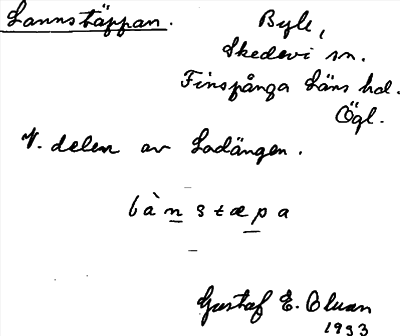 Lannstäppan.
Byle,
Skedevi sn.
Finspånga Läns hd.
Ögl.
V. delen av Ladängen.
làn stæpa
Gustaf E. Cluan
1933